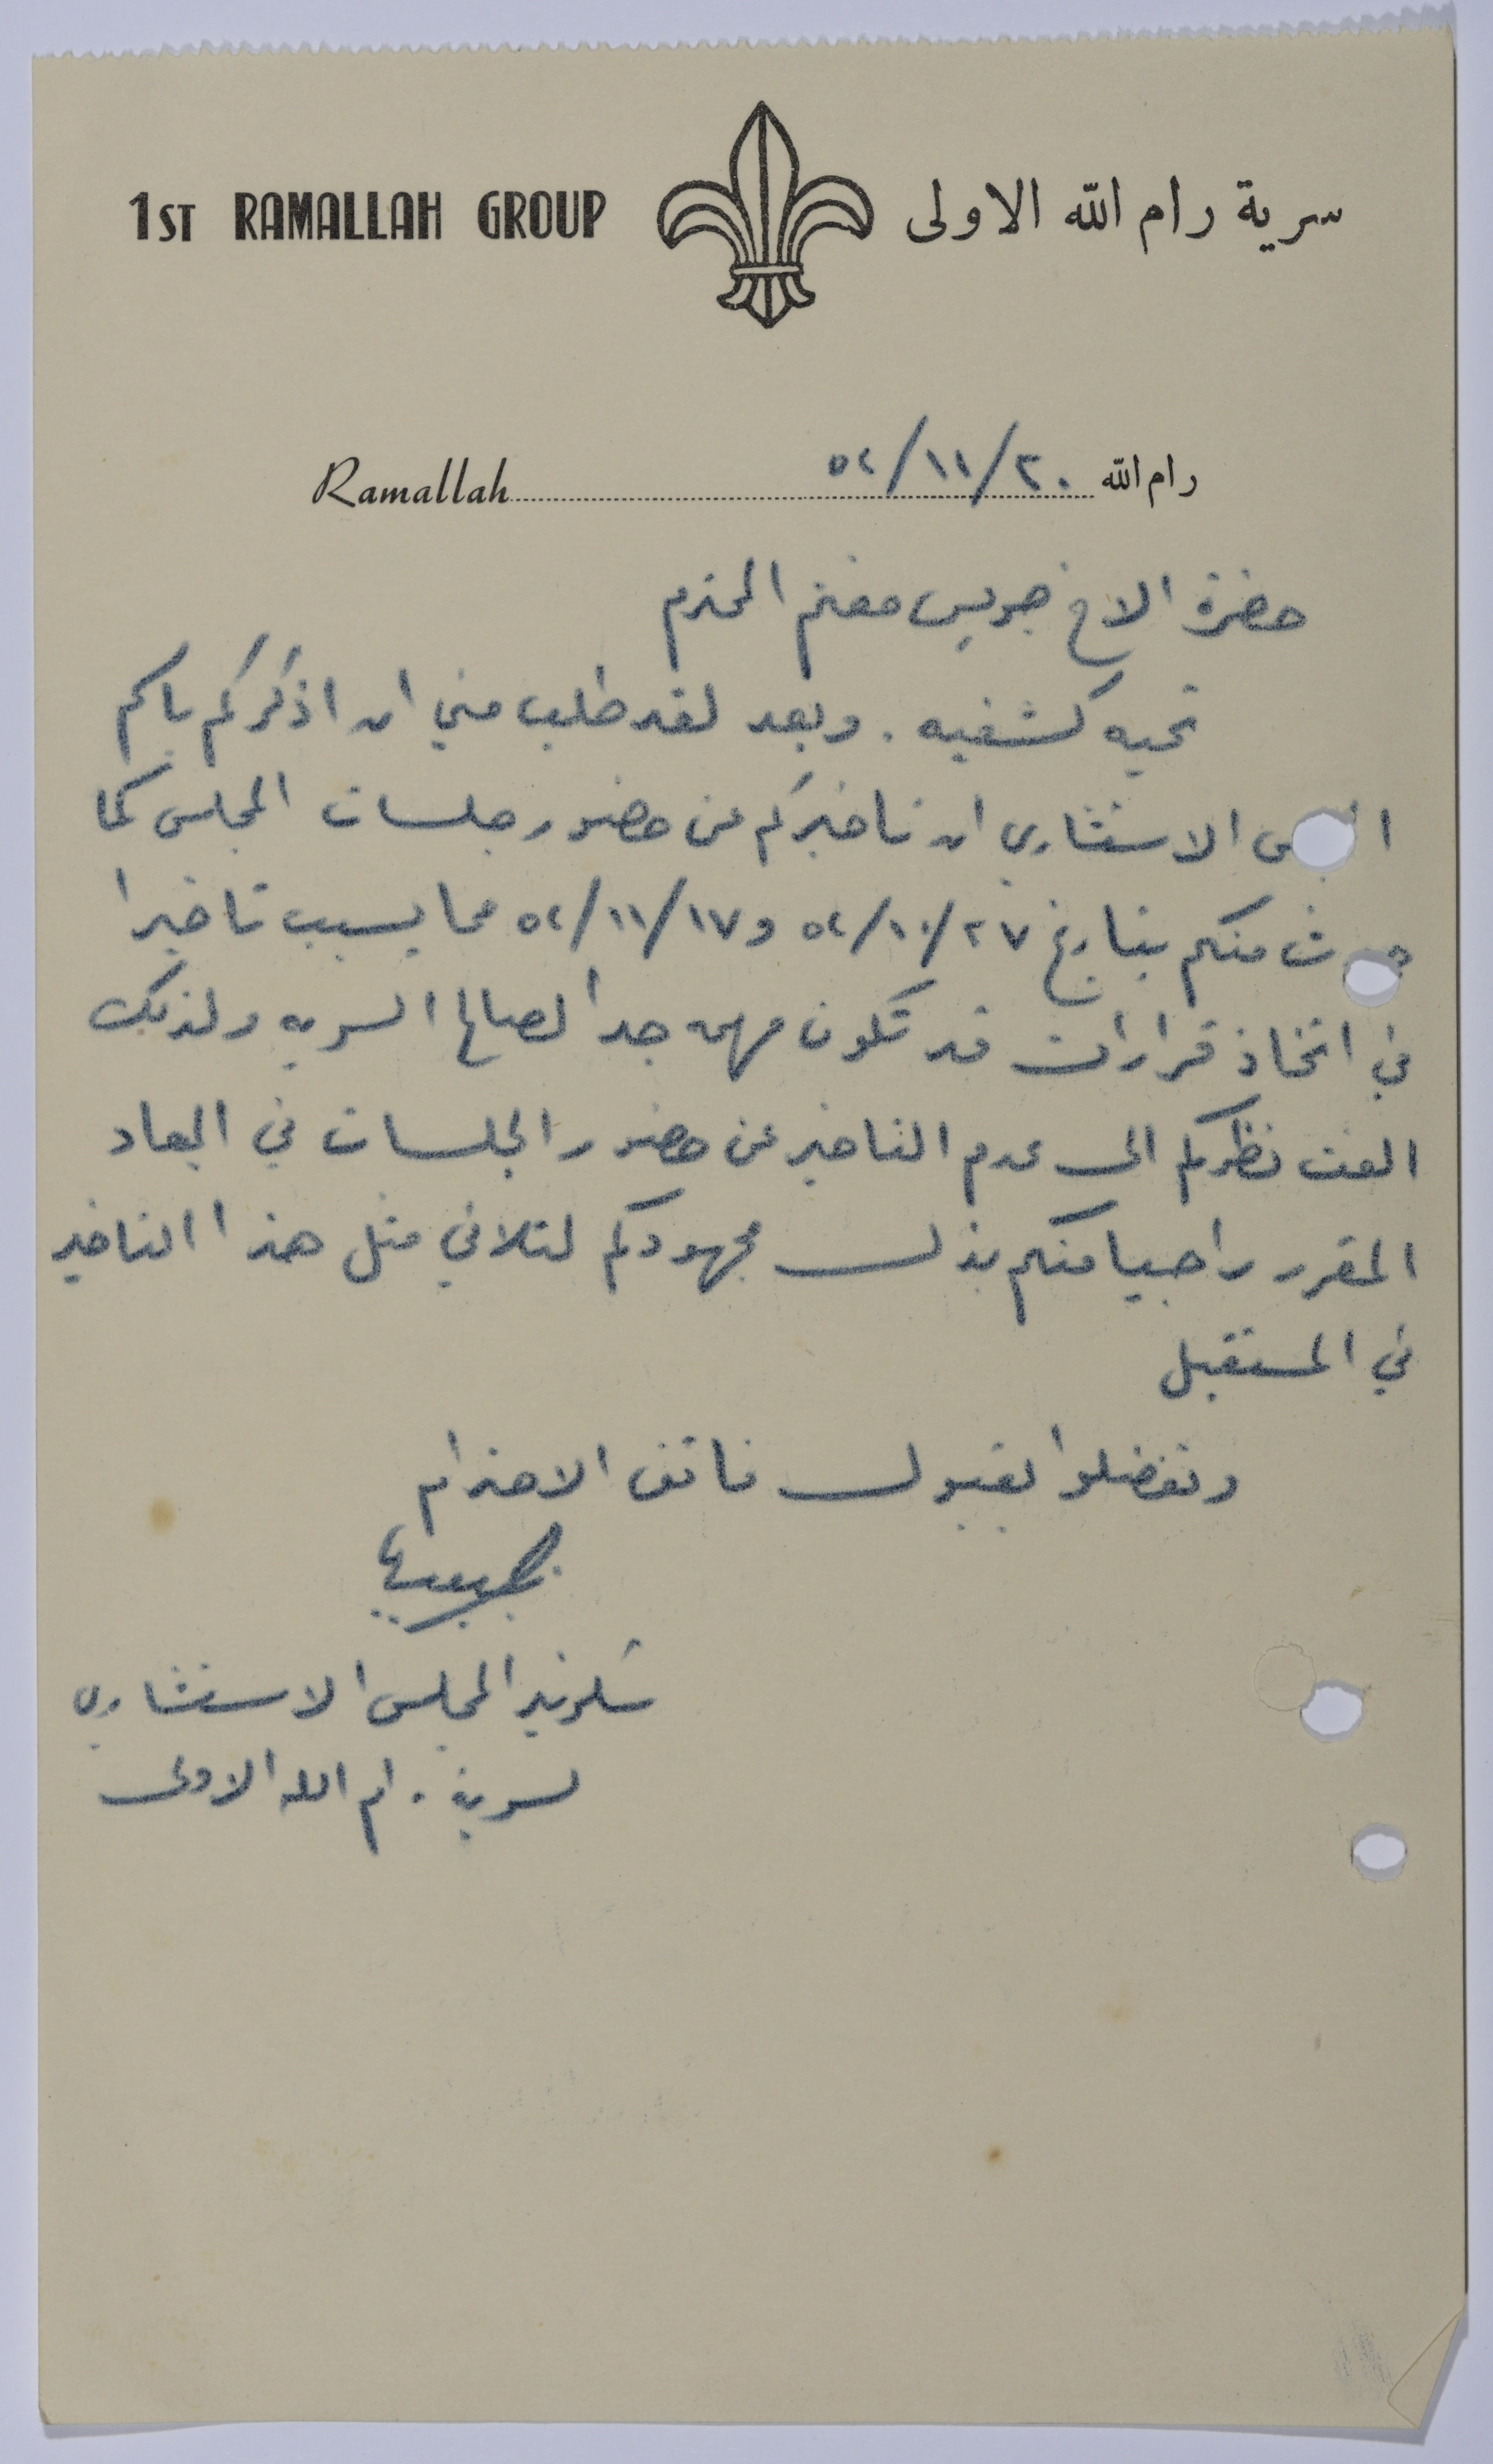 1ST RAMALLAH GROUP سرية رام الله الاولى
رام الله ٢٠/١١/٥٢ Ramallah
حضرة الاخ جريس مغنم المحترم
تحيه كشفيه . وبعد لقد طلب مني ان اذكركم باسم
الاستشاري ان تاخيركم عن حضور جلسات المجلس كما
منكم بتاريخ ٢٧/١٠/٥٢ و ١٧/١١/٥٢ مما يسبب تاخيرا
في اتخاذ قرارات قد تكون مهمه جدا لصالح السريه ولذلك
الفت نظركم الى عدم التاخير عن حضور الجلسات في الميعاد
المقرر راجيا منكم بذل مجهودكم لتلافي مثل هذا التاخير
في المستقبل
وتفضلوا بقبول فائق الاحترام
سكرتير المجلس الاستشاري
لسرية رام الله الاولى